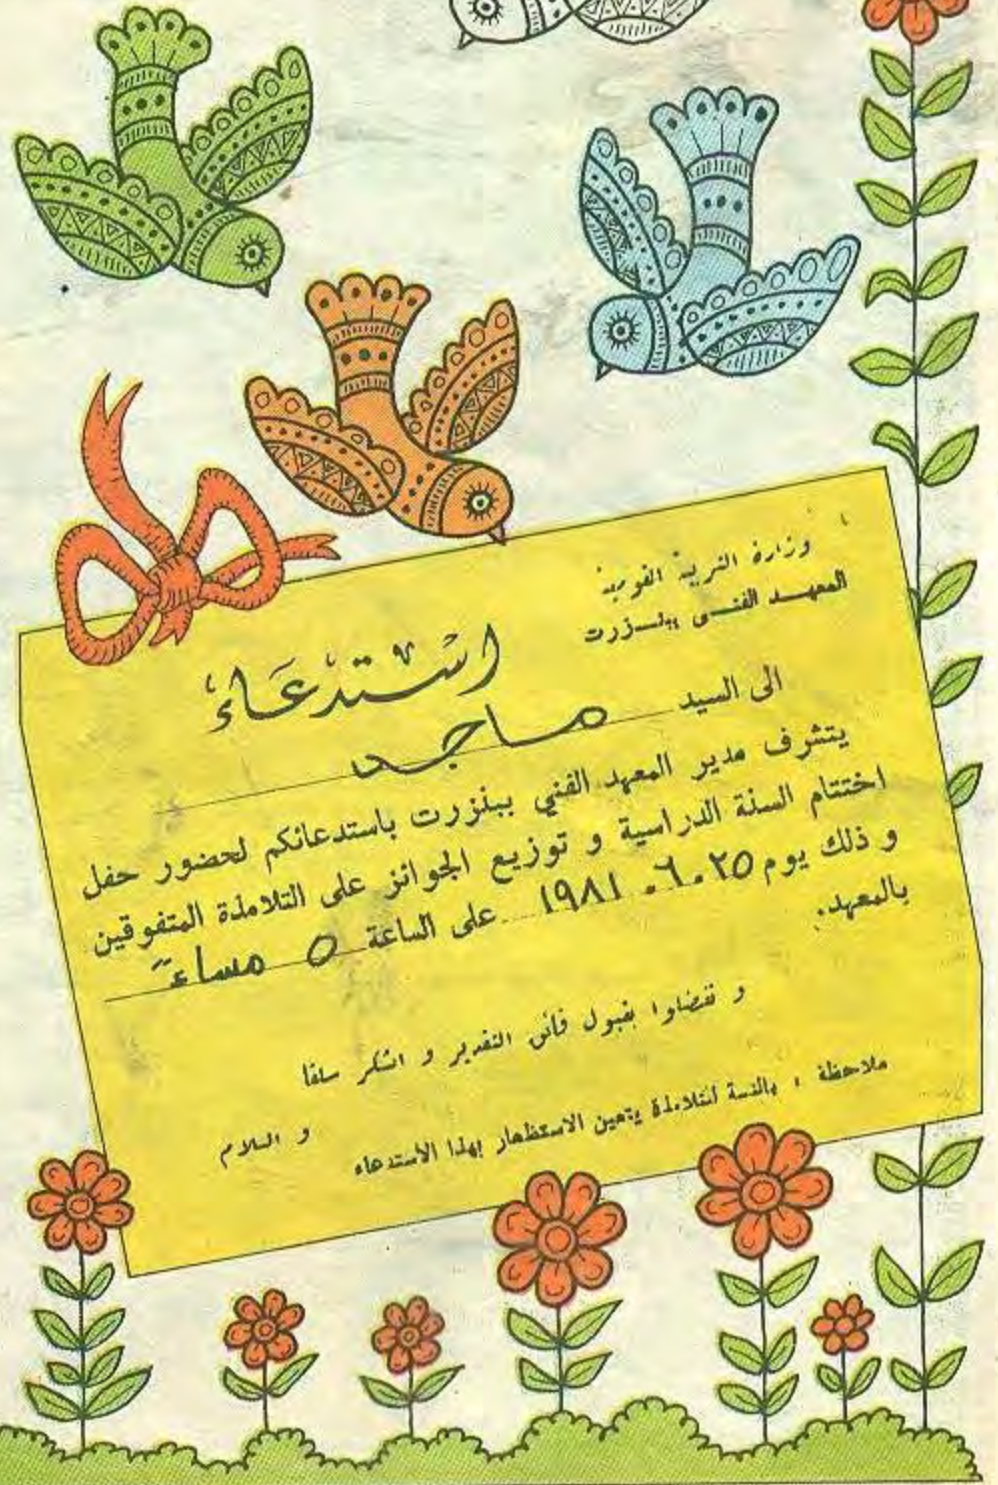 وزارة التربية القومية
المعهد الفني ببنزرت
استدعاء
الى السيد ماجد
يتشرف مدير المعهد الفني ببنزرت باستدعائكم لحضور حفل
اختتام السنة الدراسية و توزيع الجوائز على التلامذة المتفوقين
و ذلك يوم ٢٥ . ٦ . ١٩٨١ على الساعة ٥ مساءً
بالمعهد.
و تفضلوا بقبول فائق التقدير و الشكر سلفا
و السلام
ملاحظة : بالنسبة للتلامذة يتعين الاستظهار بهذا الاستدعاء